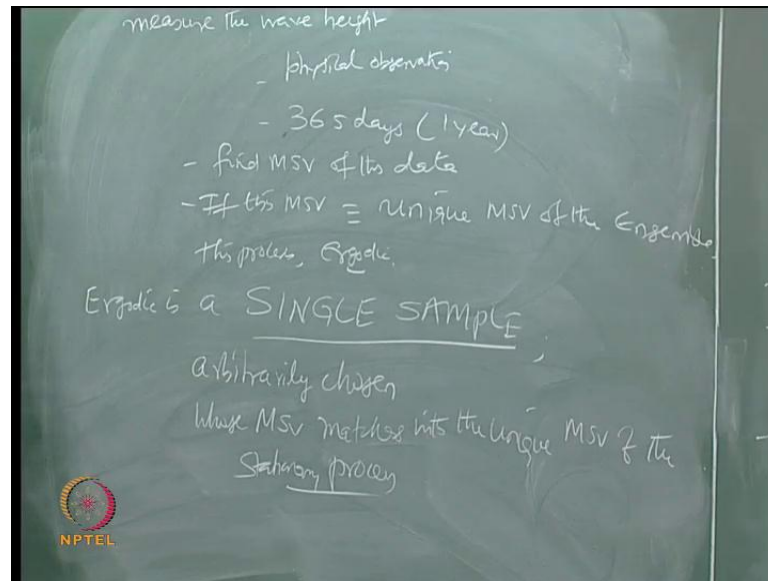 measure the wave height
- physical observation
- 365 days (1 year)
- find MSV of this data
- If this MSV ≡ Unique MSV of the Ensemble,
this process, Ergodic.
Ergodic is a SINGLE SAMPLE,
arbitrarily chosen
whose MSV matches into the unique MSV of the
Stationary process
NPTEL